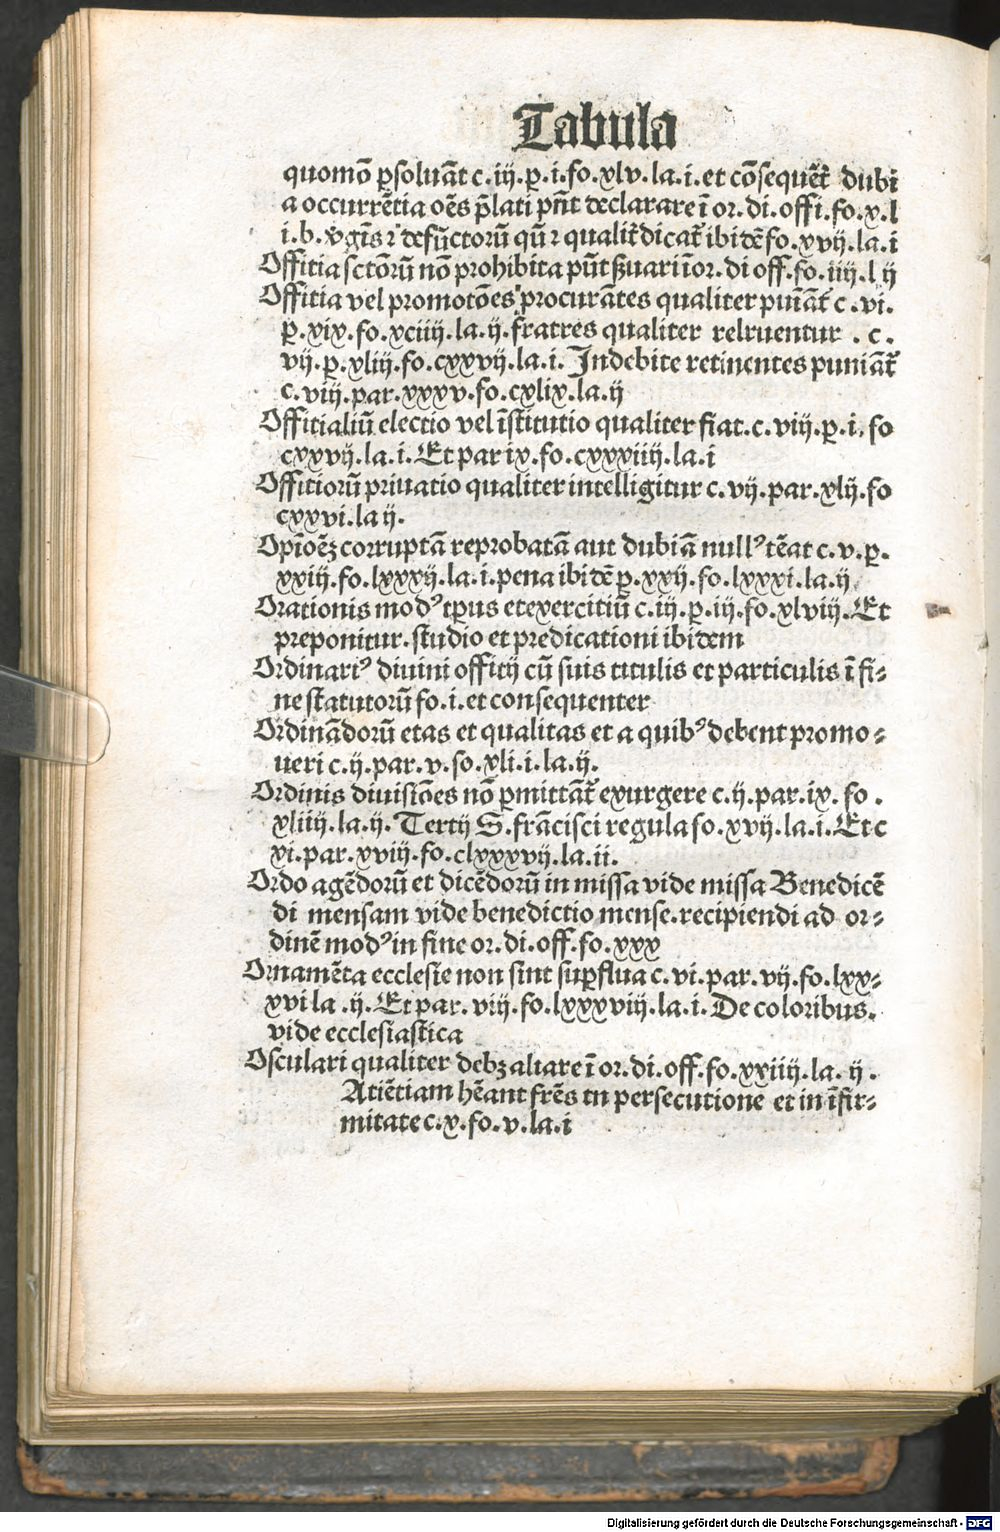 Tabula
quomō ꝑsoluāt c. iij. ꝑ. i. fo. xlv. la. i. et cōsequēt᷑ dubi
a occurrētia oēs p̄lati pn̄t declarare ī or. di. offi. fo. x. l
i. b. v̄gīs ⁊ defūctorū qn̄ ⁊ qualit᷑ dicat᷑ ibidē fo. xvij. la. i
Offitia sctōrū nō prohibita pn̄t ẜuari ī or. di off. fo. iiij. l ij
Offitia vel promotōes procurātes qualiter puīāt᷑ c. vi.
ꝑ. xix. fo. xciiij. la. ij. fratres qualiter relruentur . c.
vij. ꝑ. xliij. fo. cxxvij. la. i. Indebite retinentes puniāt᷑
c. viij. par. xxxv. fo. cxlix. la. ij
Offitialiū electio vel īstitutio qualiter fiat. c. viij. ꝑ. i. fo
cxxvij. la. i. Et par ix. fo. cxxxiiij. la. i
Offitiorū priuatio qualiter intelligitur c. vij. par. xlij. fo
cxxvi. la ij.
Opīoēꝫ corruptā reprobatā aut dubiā nullꝰ tēat c. v. ꝑ.
xxiij. fo. lxxxij. la. i. pena ibidē ꝑ. xxij. fo. lxxxi. la. ij
Orationis modꝰ tꝑus et exercitiū c. iij. ꝑ. iij. fo. xlviij. Et
preponitur. studio et predicationi ibidem
Ordinariꝰ diuini offitij cū suis titulis et particulis ī fi-
ne statutorū fo. i. et consequenter
Ordināndorū etas et qualitas et a quibꝰ debent promo-
ueri c. ij. par. v. fo. xli. i. la. ij.
Ordinis diuisiōes nō ꝑmittāt᷑ exurgere c. ij. par. ix. fo.
xliiij. la. ij. Tertij S. frācisci regula fo. xvij. la. i. Et c
xi. par. xviij. fo. clxxxvij. la. ii.
Ordo agēdorū et dicēdorū in missa vide missa Benedicē
di mensam vide benedictio mense. recipiendi ad or-
dinē modꝰ in fine or. di. off. fo. xxx
Ornamēta ecclesie non sint suꝑflua c. vi. par. vij. fo. lxx-
xvi la . ij. Et par. viij. fo. lxxxviij. la. i. De coloribus.
vide ecclesiastica
Osculari qualiter debꝫ altare ī or. di. off. fo. xxiiij. la. ij.
Atiētiam hēant frēs tn persecutione et in īfir-
mitate c. x. fo. v. la. i
Digitalisierung gefördert durch die Deutsche Forschungsgemeinschaft - DFG